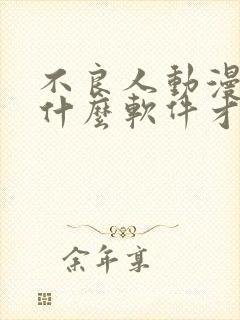 不良人動漫
什麼軟件才
余年享